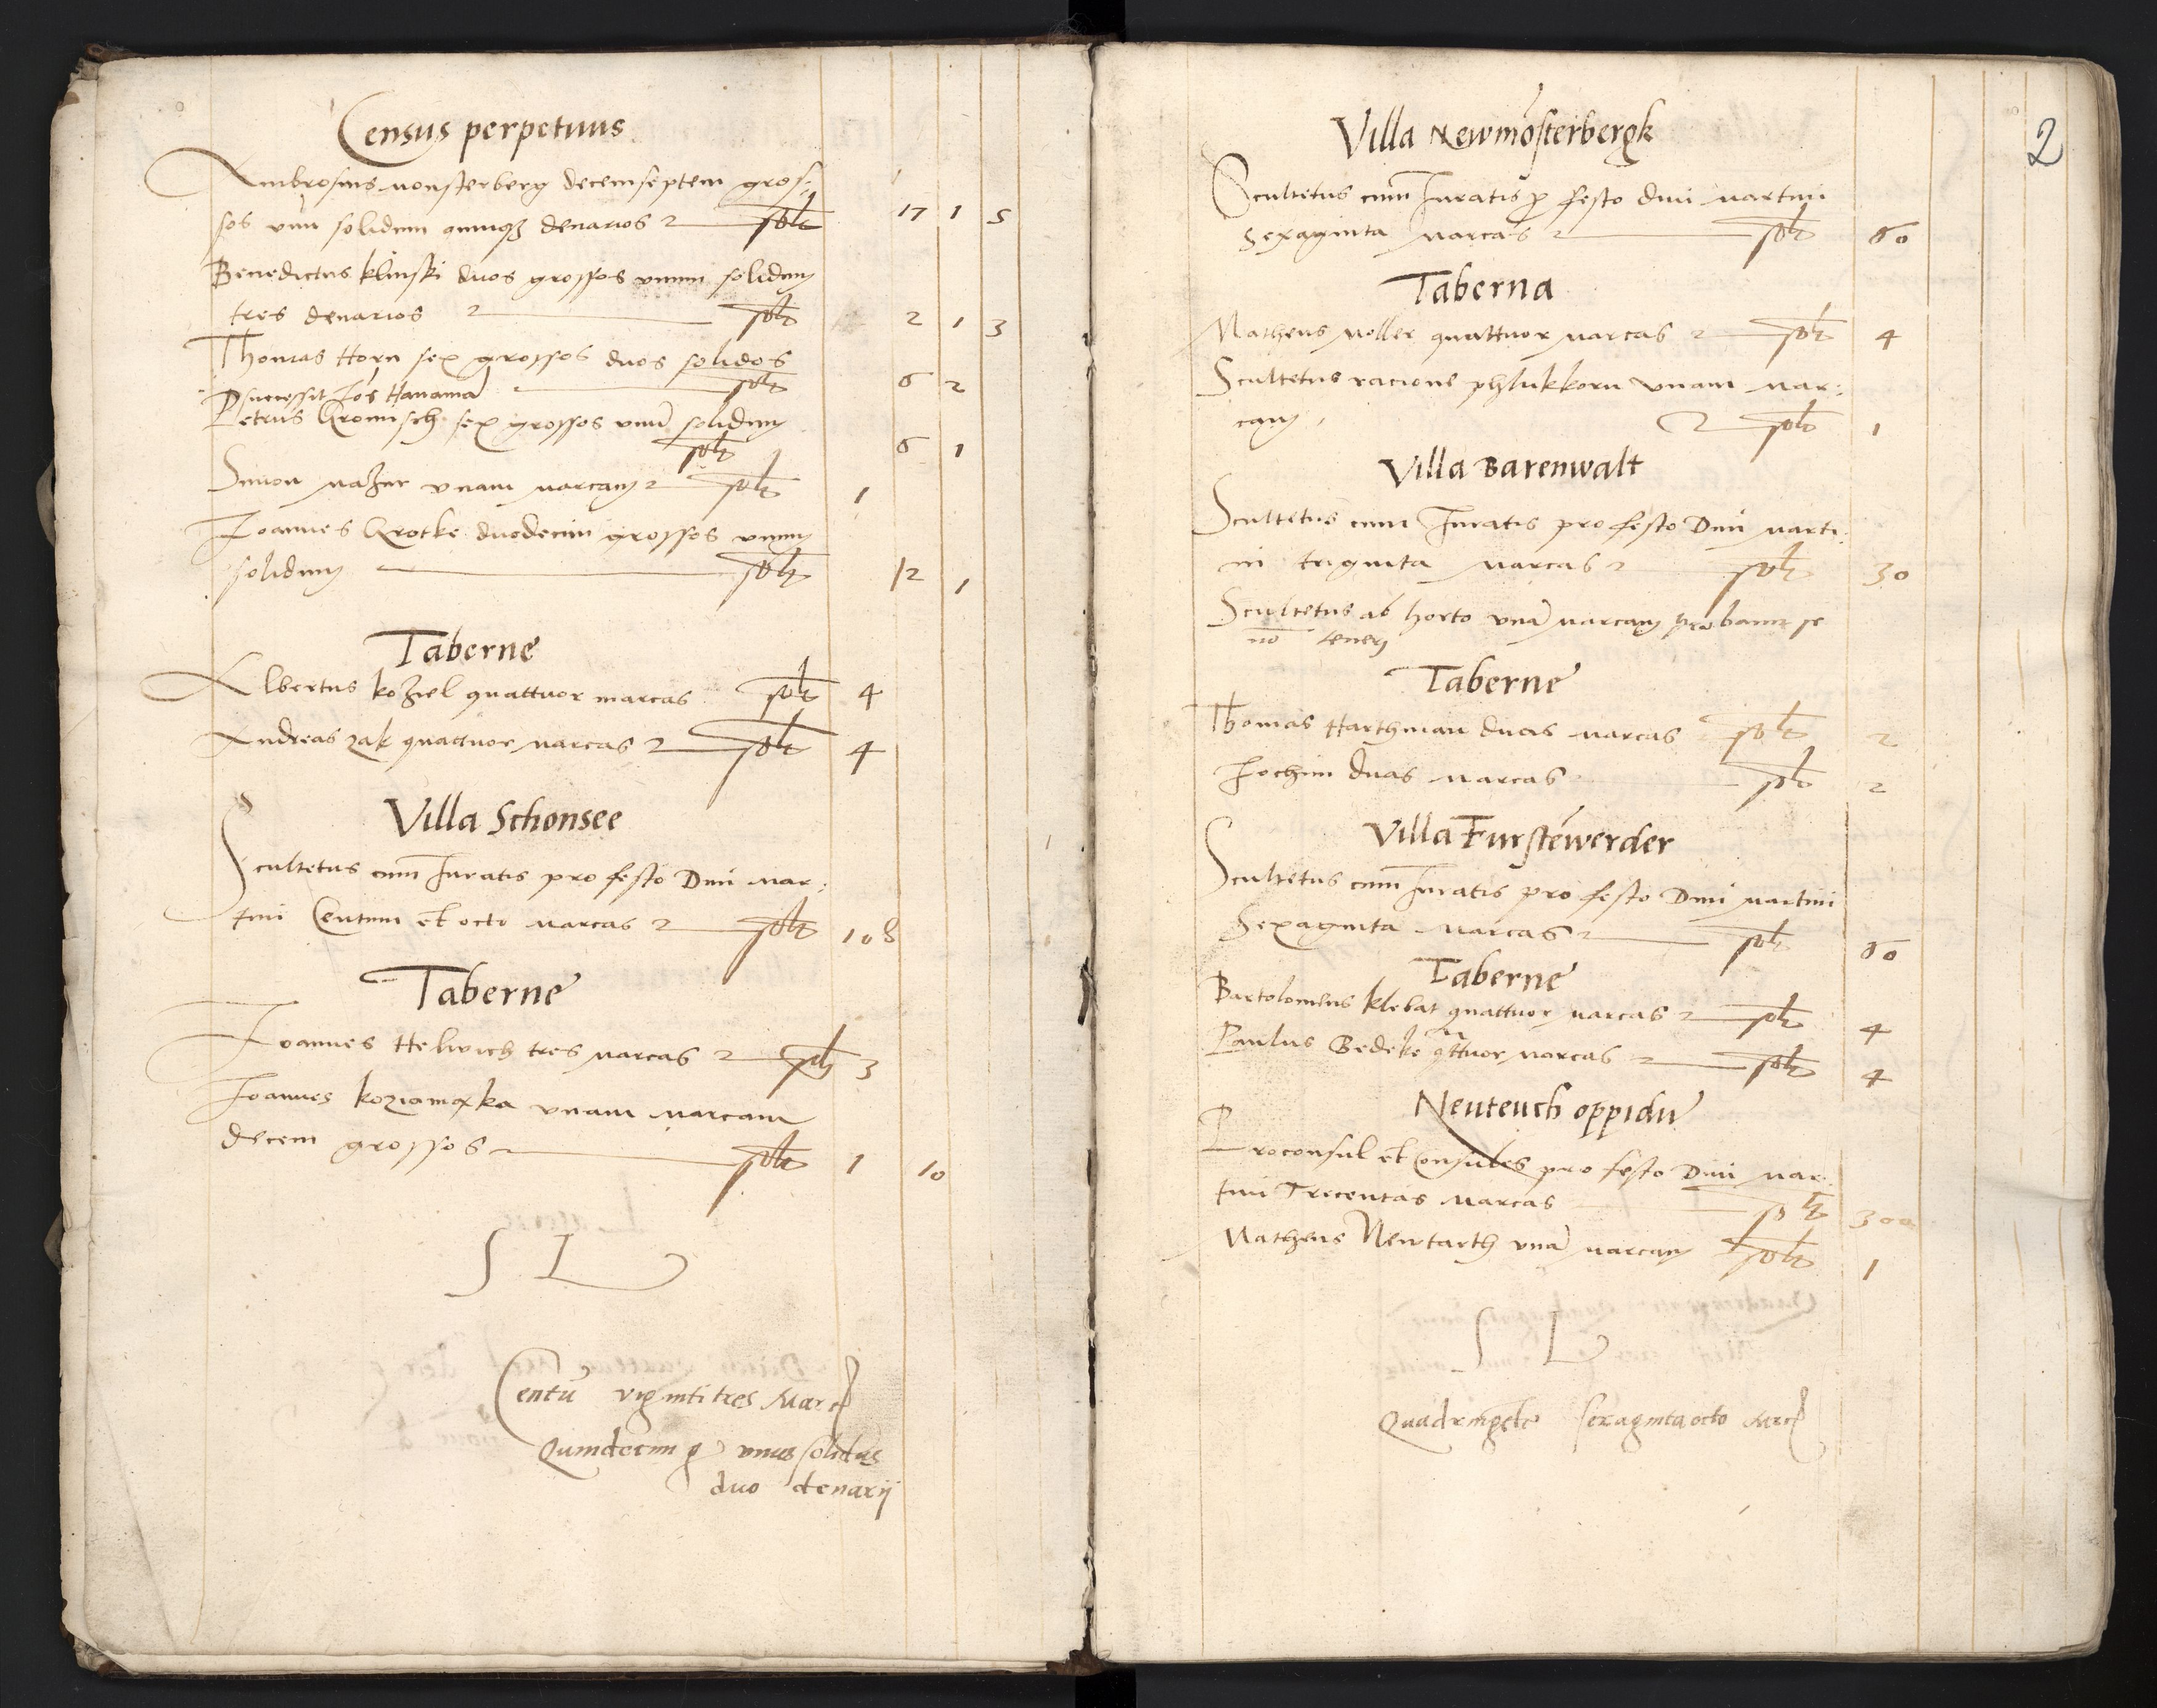 Census perpetuus
Ambrosius Monsterberg decemseptem gros:
sos unū solidum quinqȝ denarios solt 17 1 5
Benedictus klinski duos grossos unum solidum
tres denarios solt 2 1 3
Thomas Horn sex grossos duos solidos
successit Jos Hanaman solt 6 2
Petrus Gromisch sex grossos unū solidum
solt 6 1
Simon Mazur unam marcam solt 1
Joannes Grotke duodecim grossos unum
solidum solt 12 1
Taberne
Albertus koziel quattuor marcas solt 4
Andreas zak quattuor marcas solt 4
Villa Schonsee
Scultetus cum Juratis pro festo Divi Mar:
tini Centum et octo marcas solt 108
Taberne
Joannes Helwich tres marcas solt 3
Joannes koziamaxka unam marcam
decem grossos solt 1 10
S L
Centū viginti tres Marc
Quindecim g unus solidus
duo denarij
2
Villa Newmōsterbergk
Scultetus cum Juratis p festo divi Martini
Sexaginta Marcas solt 60
Taberna
Matheus Moller quattuor marcas solt 4
Scultetus racione phlukkorn unam Mar:
cam solt 1
Villa Barenwalt
Scultetus cum Juratis pro festo Divi Marti:
ni triginta marcas solt 30
Scultetus ab horto unā marcam probavit se
nō teneri
Taberne
Thomas Harthman duas marcas solt 2
Jochim duas marcas solt 2
Villa Furstēwerder
Scultetus cum Juratis pro festo Divi Martini
Sexaginta marcas solt 60
Taberne
Bartolomeus klebat quattuor marcas solt 4
Paulus Bedeke qttuor marcas solt 4
Neuteich oppidū
Proconsul et Consules pro festo Divi Mar:
tini Trecentas Marcas solt 300
Matheus Newtarth unā marcam solt 1
S L
Quadringēte sexaginta octo Marc